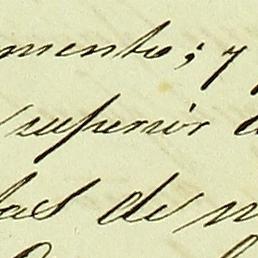 mento; y
superior
las de